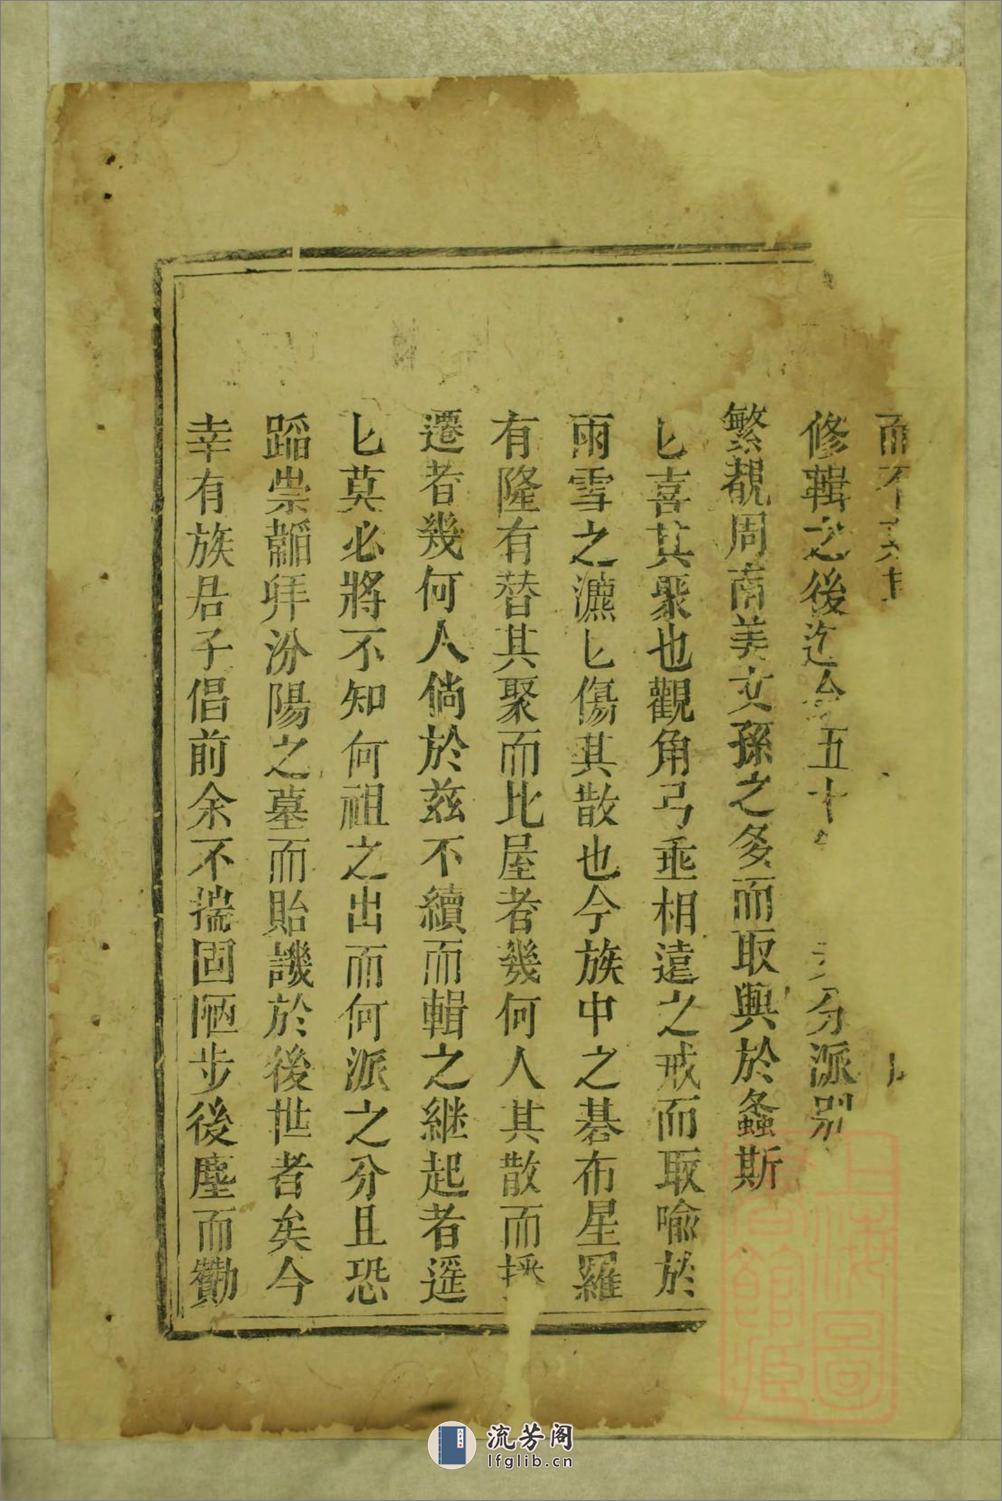 而不
修輯之後迄今五十 分派別
繁覩周南美文孫之多而取興於螽斯
匕喜其聚也觀角弓垂相遠之戒而取喻於
雨雪之瀌匕傷其散也今族中之碁布星羅
有隆有替其聚而比屋者幾何人其散而
遷者幾何人倘於兹不續而輯之継起者遥
匕莫必將不知何祖之出而何派之分且恐
蹈崇韜拜汾陽之墓而貽譏於後世者矣今
幸有族君子倡前余不揣固陋步後塵而勷
上海圖書館藏
流芳阁
lfglib.cn